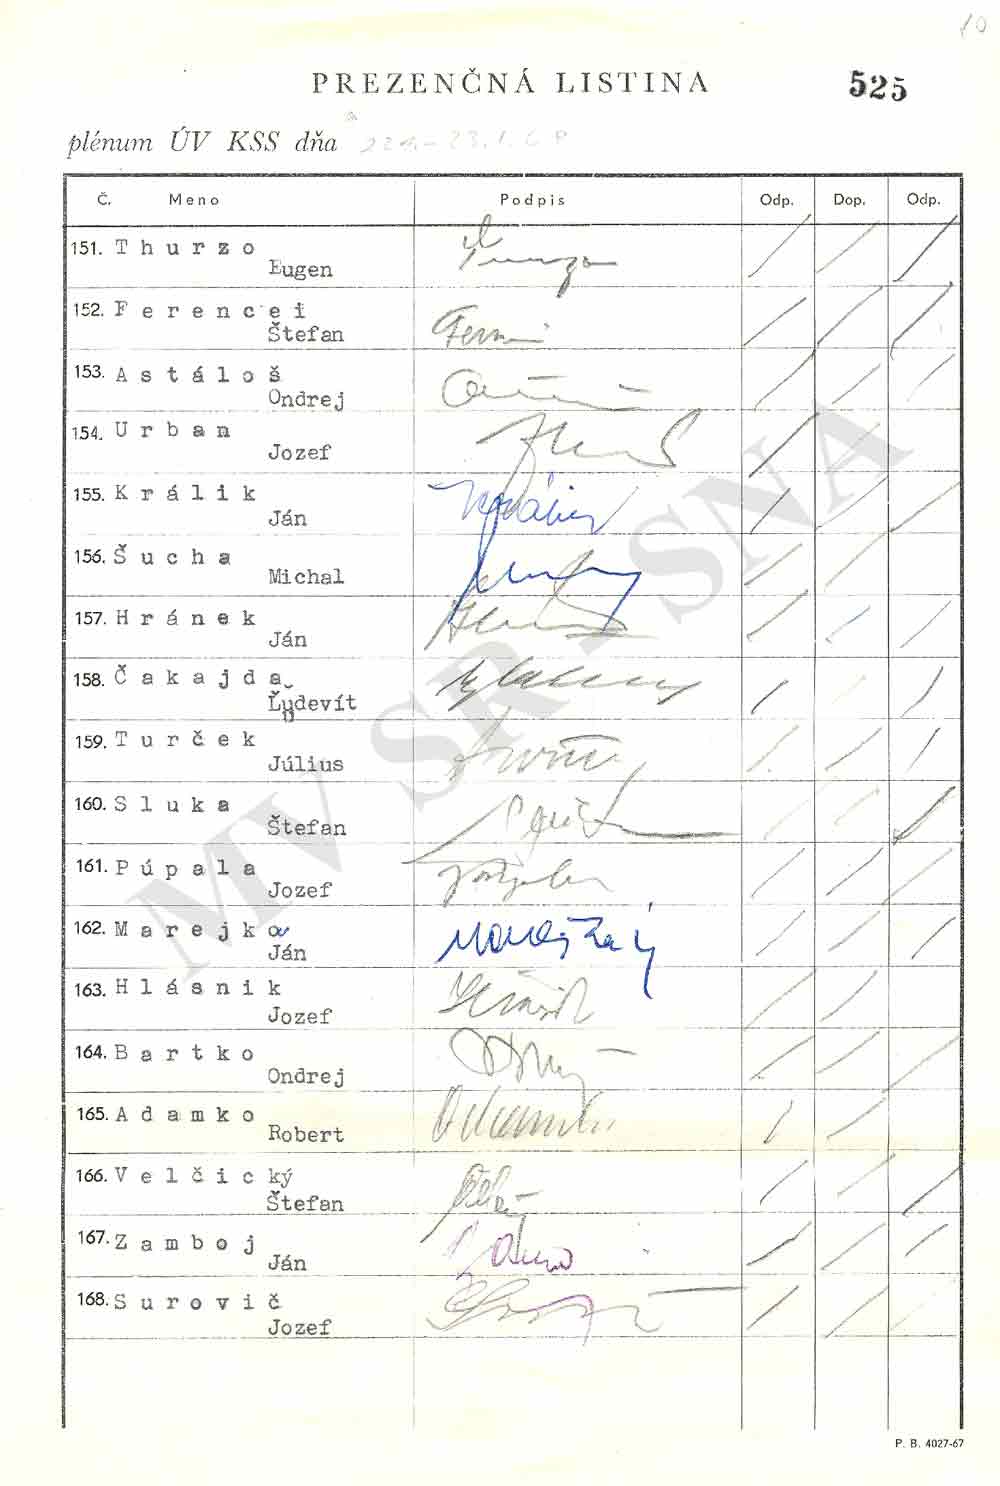 10
PREZENČNÁ LISTINA 525
plénum ÚV KSS dňa 22. - 23.1.68
Č. Meno Podpis Odp. Dop. Odp.
151. Thurzo
Eugen
152. Ferencei
Štefan
153. Astáloš
Ondrej
154. Urban
Jozef
155. Králik
Ján
156. Šucha
Michal
157. Hránek
Ján
158. Čakajda
Ľudevít
159. Turček
Július
160. Sluka
Štefan
161. Púpala
Jozef
162. Marejka
Ján
163. Hlásnik
Jozef
164. Bartko
Ondrej
165. Adamko
Robert
166. Velčický
Štefan
167. Zamboj
Ján
168. Surovič
Jozef
MV SR - SNA
P. B. 4027-67